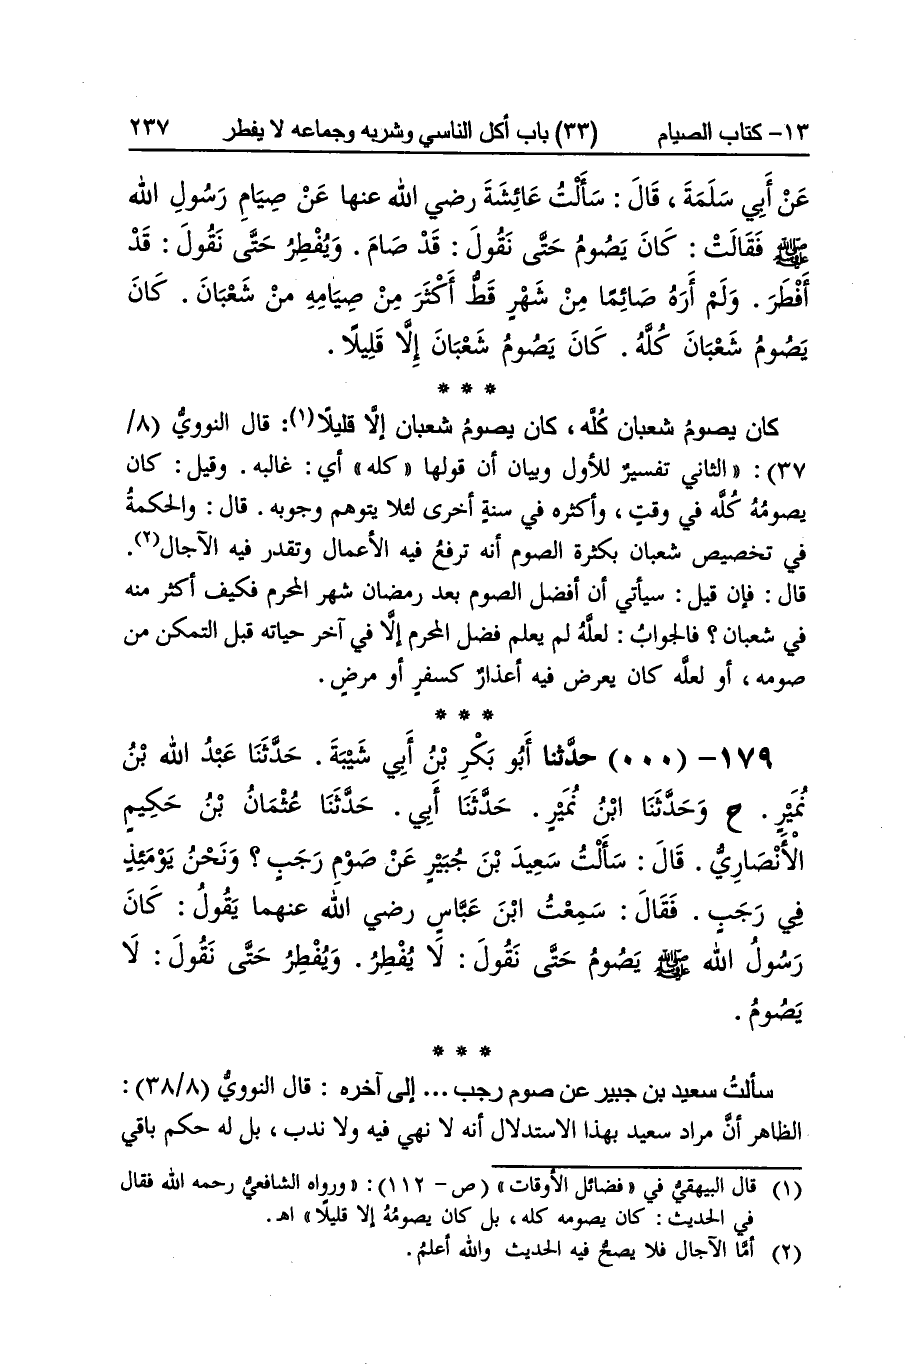 ١٣- كتاب الصيام (٣٣) باب أكل الناسي وشربه وجماعه لا يفطر ٢٣٧
عَنْ أَبِي سَلَمَةَ ، قَالَ : سَأَلْتُ عَائِشَةَ رضي الله عنها عَنْ صِيَامِ رَسُولِ الله
ﷺ فَقَالَتْ : كَانَ يَصُومُ حَتَّى نَقُولَ : قَدْ صَامَ . وَيُفْطِرُ حَتَّى نَقُولَ : قَدْ
أَفْطَرَ . وَلَمْ أَرَهُ صَائِمًا مِنْ شَهْرٍ قَطُّ أَكْثَرَ مِنْ صِيَامِهِ منْ شَعْبَانَ . كَانَ
يَصُومُ شَعْبَانَ كُلَّهُ . كَانَ يَصُومُ شَعْبَانَ إِلَّا قَلِيلًا .
* * *
كان يصومُ شعبان كُلَّه ، كان يصومُ شعبان إلَّا قليلًا(١): قال النوويُّ (٨/
٣٧) : « الثاني تفسيرٌ للأول وبيان أن قولها « كله » أي : غالبه . وقيل : كان
يصومُهُ كُلَّه في وقتٍ ، وأكثره في سنةٍ أخرى لئلا يتوهم وجوبه . قال : والحكمةُ
في تخصيص شعبان بكثرة الصوم أنه ترفعُ فيه الأعمال وتقدر فيه الآجال(٢).
قال : فإن قيل : سيأتي أن أفضل الصوم بعد رمضان شهر المحرم فكيف أكثر منه
في شعبان ؟ فالجوابُ : لعلَّهُ لم يعلم فضل المحرم إلَّا في آخر حياته قبل التمكن من
صومه ، أو لعلَّه كان يعرض فيه أعذارٌ كسفرٍ أو مرضٍ .
* * *
١٧٩- (٠٠٠) حدَّثنا أَبُو بَكْرِ بْنُ أَبِي شَيْبَةَ . حَدَّثَنَا عَبْدُ الله بْنُ
نُمَيْرٍ . ح وَحَدَّثَنَا ابْنُ نُمَيْرٍ . حَدَّثَنَا أَبِي . حَدَّثَنَا عُثْمَانُ بْنُ حَكِيمٍ
الْأَنْصَارِيُّ . قَالَ : سَأَلْتُ سَعِيدَ بْنَ جُبَيْرٍ عَنْ صَوْمِ رَجَبٍ ؟ وَنَحْنُ يَوْمَئِذٍ
فِي رَجَبٍ . فَقَالَ : سَمِعْتُ ابْنَ عَبَّاسٍ رضي الله عنهما يَقُولُ : كَانَ
رَسُولُ الله ﷺ يَصُومُ حَتَّى نَقُولَ : لَا يُفْطِرُ . وَيُفْطِرُ حَتَّى نَقُولَ : لَا
يَصُومُ .
* * *
سألتُ سعيد بن جبير عن صوم رجب ... إلى آخره : قال النوويُّ (٣٨/٨) :
الظاهر أنَّ مراد سعيد بهذا الاستدلال أنه لا نهي فيه ولا ندب ، بل له حكم باقي
(١) قال البيهقيُّ في « فضائل الأوقات » (ص - ١١٢) : « ورواه الشافعيُّ رحمه الله فقال
في الحديث : كان يصومه كله ، بل كان يصومُهُ إلا قليلًا » اهـ .
(٢) أمَّا الآجال فلا يصحُّ فيه الحديث والله أعلمُ .